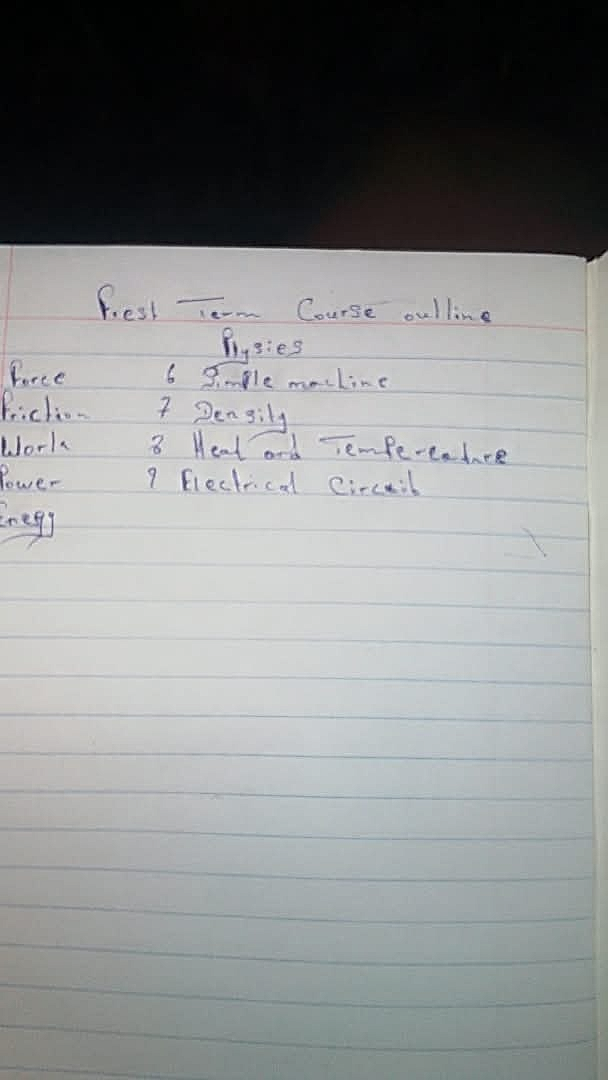 First Term Course outline
Physics
Force 6 Simple machine
Friction 7 Density
Work 8 Heat and Temperature
Power 9 Electrical Circuit
Enegy